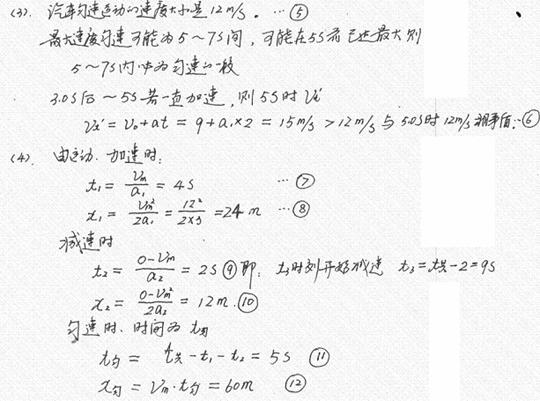 (3). 汽车匀速运动的速度大小是12m/s. …⑤
最大速度匀速可能为5~7S间, 可能在5S前已达最大则
5~7S内均为匀速的一段
3.0S后~5S若一直加速, 则5S时Vt'
Vt' = V0+at = 9+a1×2 = 15m/s > 12m/s 与5.0S时12m/s相矛盾.⑥
(4). 由运动. 加速时:
t1 = Vm/a1 = 4S …⑦
x1 = Vm²/2a1 = 12²/2×3 = 24m …⑧
减速时
t2 = 0-Vm/a2 = 2S ⑨ 即: t3时刻开始减速 t3=t共-2=9S
x2 = 0-Vm²/2a2 = 12m.⑩
匀速时. 时间为t匀
t匀 = t共-t1-t2 = 5S ⑪
x匀 = Vm·t匀 = 60m ⑫